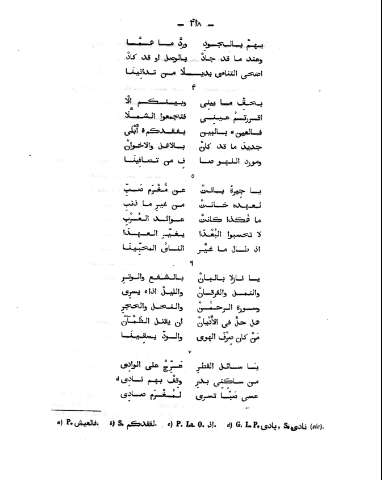 — ٣١٨ —
يهيم بالسجود وردّ ما عمّا
وعند ما قد جادْ بالوصل او قد كادْ
اضحى التنائي بديلًا من تدانينا
٣
بحقّ ما بينى وبينكم الّا
اقررتمُ عينى فتجمعوا الشملَا
فالعين بالبين بفقدكم أبْلى
جديدَ ما قد كانْ بالاهل والاخوانْ
ومورد اللهو صا فٍ من تصافينا
٥
يا جيرةً بانتْ عن مُغْرَم صبّ
لعهده خانتْ من غير ما ذنب
ما هكذا كانتْ عوائد العُرْب
لا تحسبوا البُعْدا يغيّر العهدا
اذ طال ما غيّر النأى المحبّينا
٦
يا نازلا بالبانْ بالشفع والوتر
والنمل والفرقانْ والليل اذا يسرى
وسورة الرحمٰنْ والنحل والحجر
هل حلّ فى الأديانْ ان يقتل الظمآنْ
مَن كان صرف الهوى والودّ يسقينا
٧
يا سائل القطر عرّج على الوادى
من ساكنى بدر وقف بهم نادى
عسى صبًا تسرى لمغرم صادى
a) P. فالعيش. b) S. لفقدكم. c) P. La. O. اذ. d) G. L. P. يادى, S. نادى (sic).